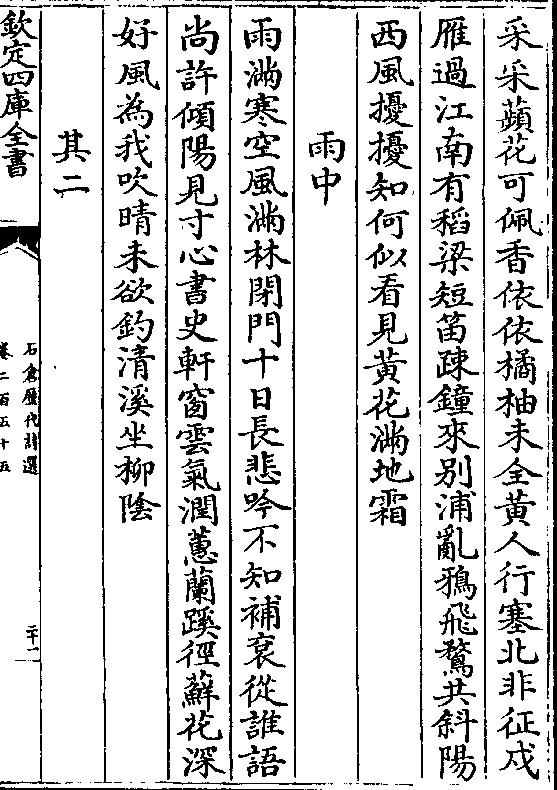 采采蘋花可佩香依依橘柚未全黄人行塞北非征戍
雁過江南有稻梁短笛疎鐘來别浦亂鴉飛鶩共斜陽
西風擾擾知何似看見黃花滿地霜
雨中
雨滿寒空風滿林閉門十日長悲吟不知補衮從誰語
尚許傾陽見寸心書史軒窗雲氣潤蕙蘭蹊徑蘚花深
好風為我吹晴未欲釣清溪坐柳陰
其二
欽定四庫全書
石倉歷代詩選
卷二百五十五
二十一